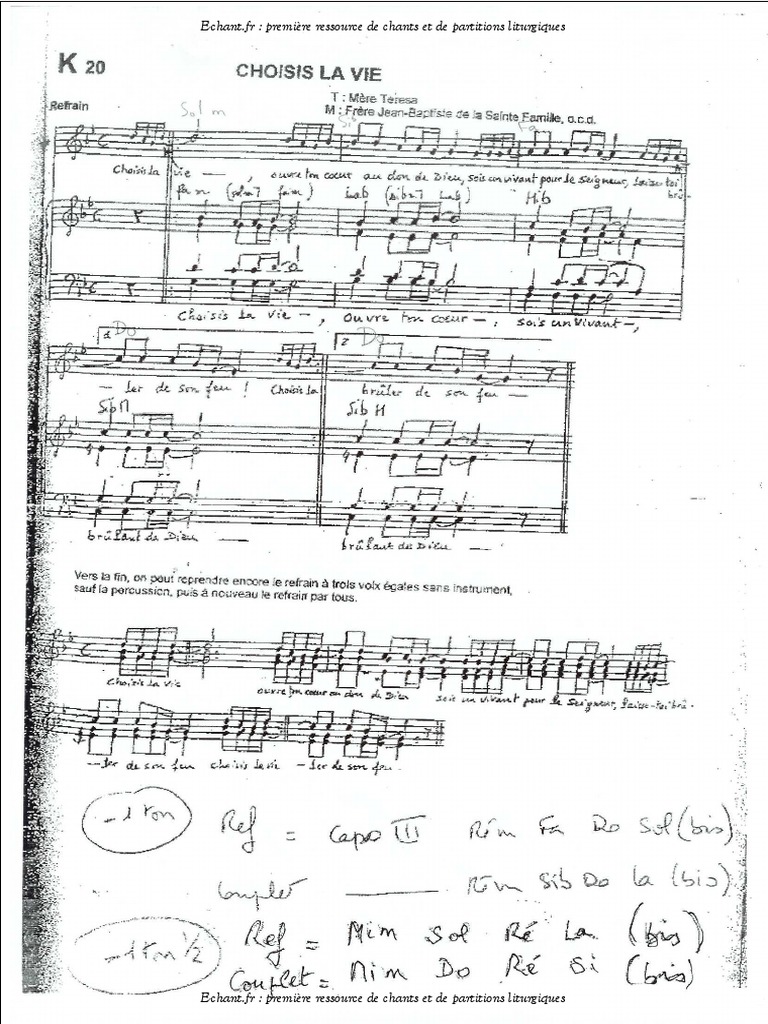 Echant.fr : première ressource de chants et de partitions liturgiques
K 20
CHOISIS LA VIE
T : Mère Teresa
M : Frère Jean-Baptiste de la Sainte Famille, o.c.d.
Refrain
Sol m
Choisis la vie —, ouvre ton cœur au don de Dieu, sois un vivant pour le Seigneur, laisse-toi brû-
Choisis la vie —, ouvre ton cœur —, sois un vivant —,
1 Do
2 Do
— ler de son feu ! Choisis la
brûler de son feu —
brûlant de Dieu —
brûlant de Dieu —
Vers la fin, on peut reprendre encore le refrain à trois voix égales sans instrument,
sauf la percussion, puis à nouveau le refrain par tous.
Choisis la vie
ouvre ton cœur au don de Dieu
sois un vivant pour le Seigneur, laisse-toi brû-
— ler de son feu choisis la vie — ler de son feu
- 1 ton
Ref = Capo III Rém Fa Do Sol (bis)
Couplet ——— Rém Sib Do La (bis)
- 1 ton 1/2
Ref = Mim Sol Ré La (bis)
Couplet = Mim Do Ré Si (bis)
Echant.fr : première ressource de chants et de partitions liturgiques